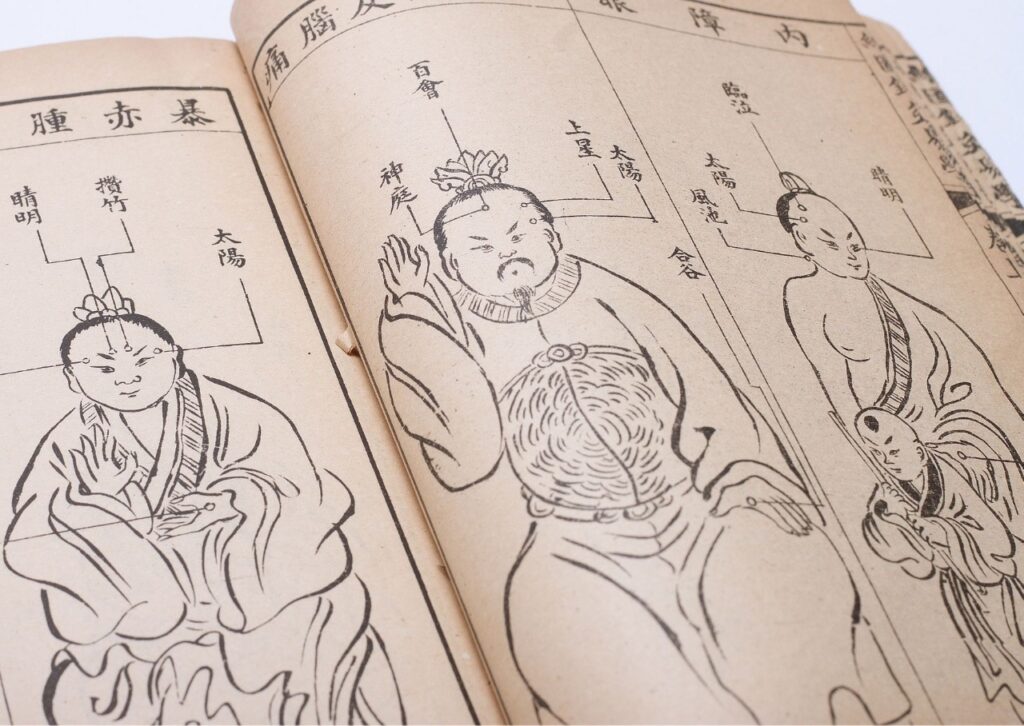 內障眼
睛明
臨泣
太陽
風池
及腦痛
合谷
太陽
上星
百會
神庭
暴赤腫
太陽
攢竹
睛明